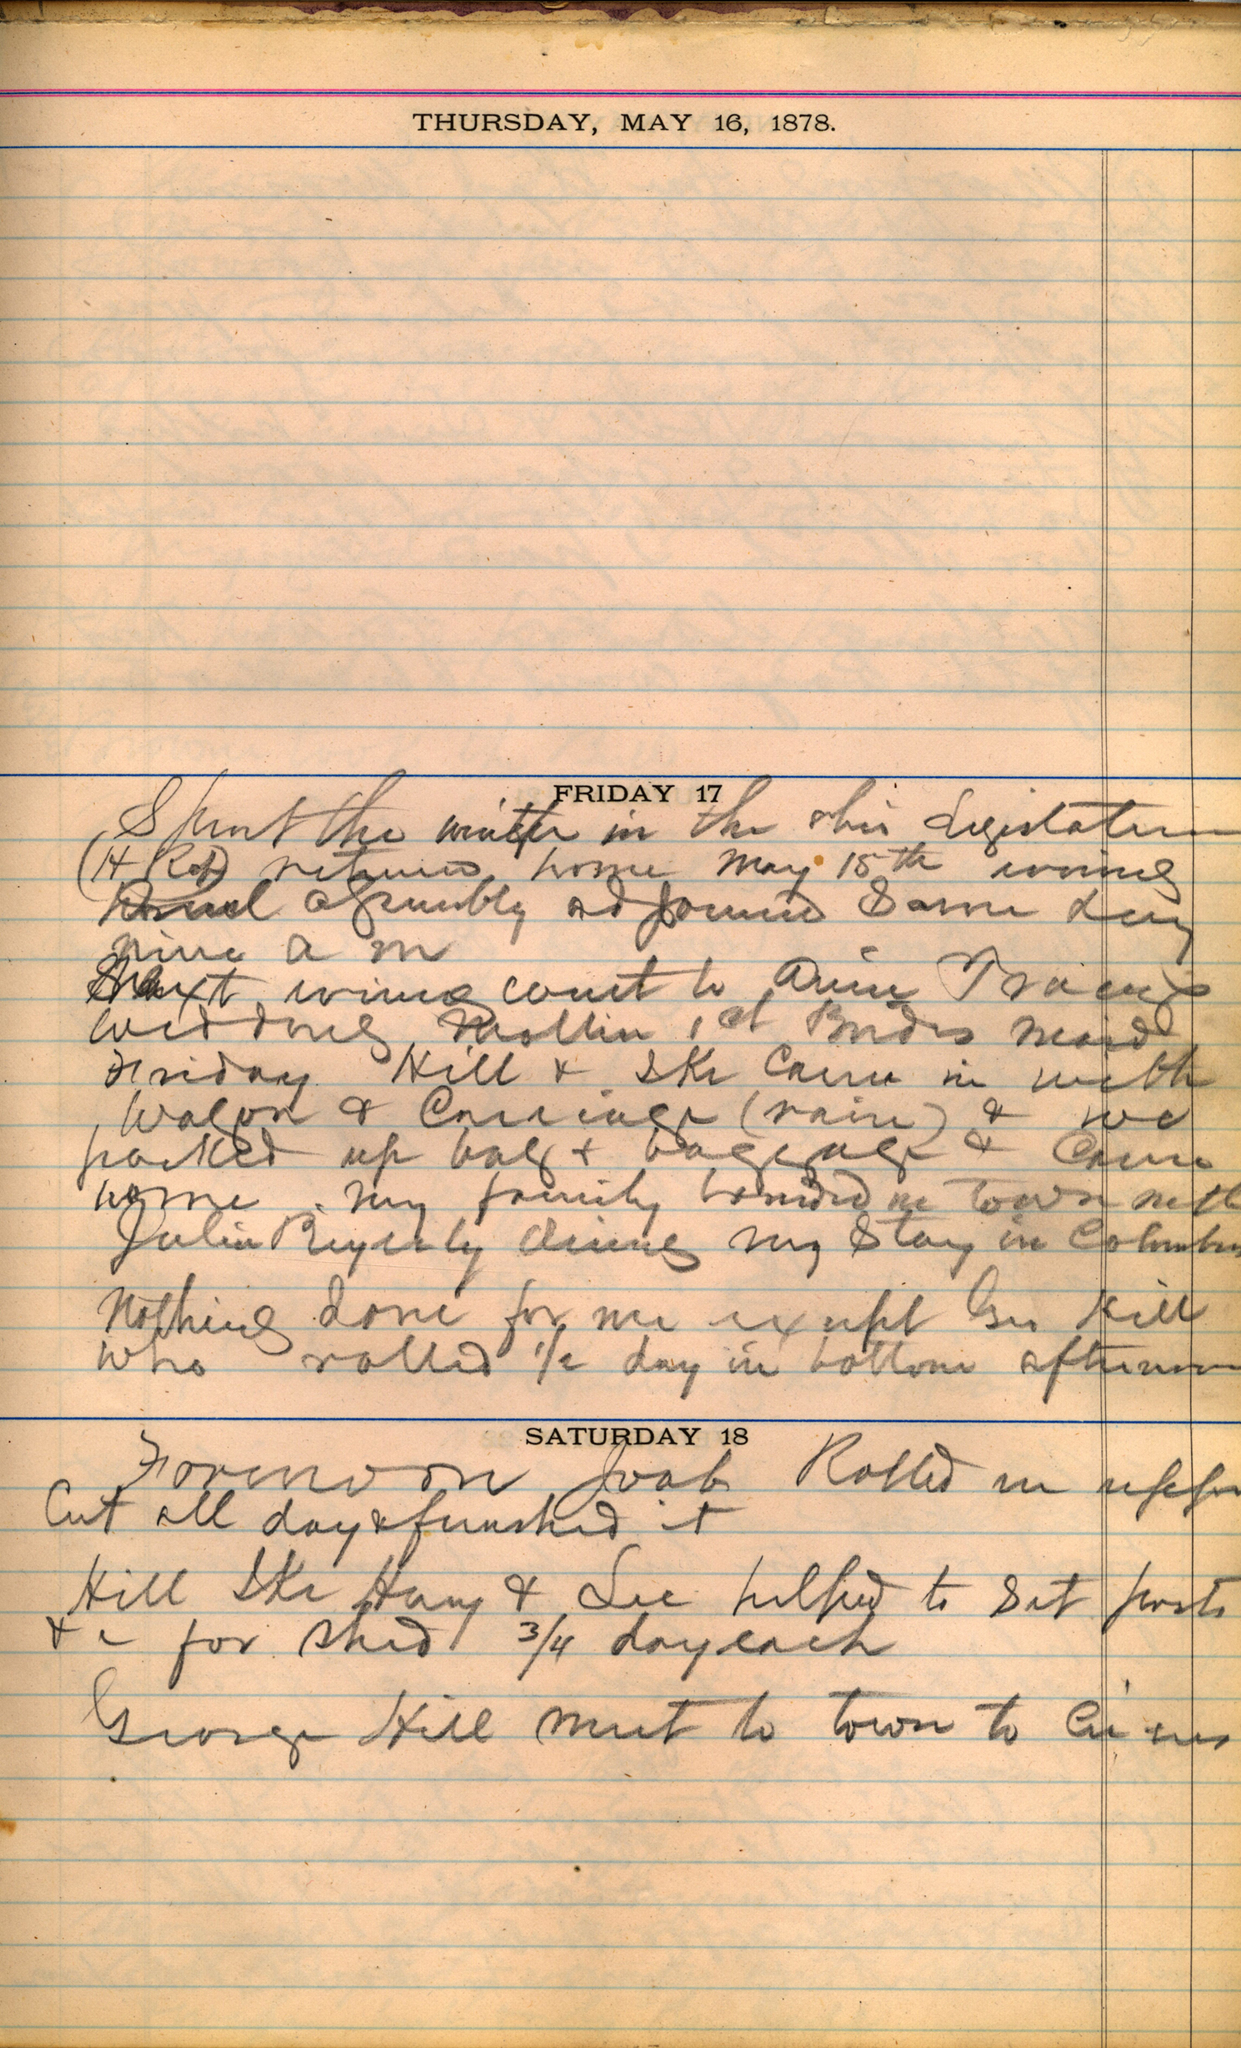 THURSDAY, MAY 16, 1878.
FRIDAY 17
Spent the winter in the ohio Legislature
(H Rep) returned home May 15th evening
assembly adjourned same day
nine a m
Next evening went to Travis
wedding Mollie 1st Brides maid
Friday Hill & Ike came in with
Wagon & Carriage (rain) & we
packed up bag & baggage & came
home. my family boarded in town with
Julia during my Stay in Columbus
Nothing done for me except Geo Hill
who rolled 1/2 day in bottom afternoon
SATURDAY 18
Forenoon Joab Rolled in upper
Cut all day & finished it
Hill Ike Harry & Lee helped to Set posts
& c for shed 3/4 day each
George Hill went to town to Circus